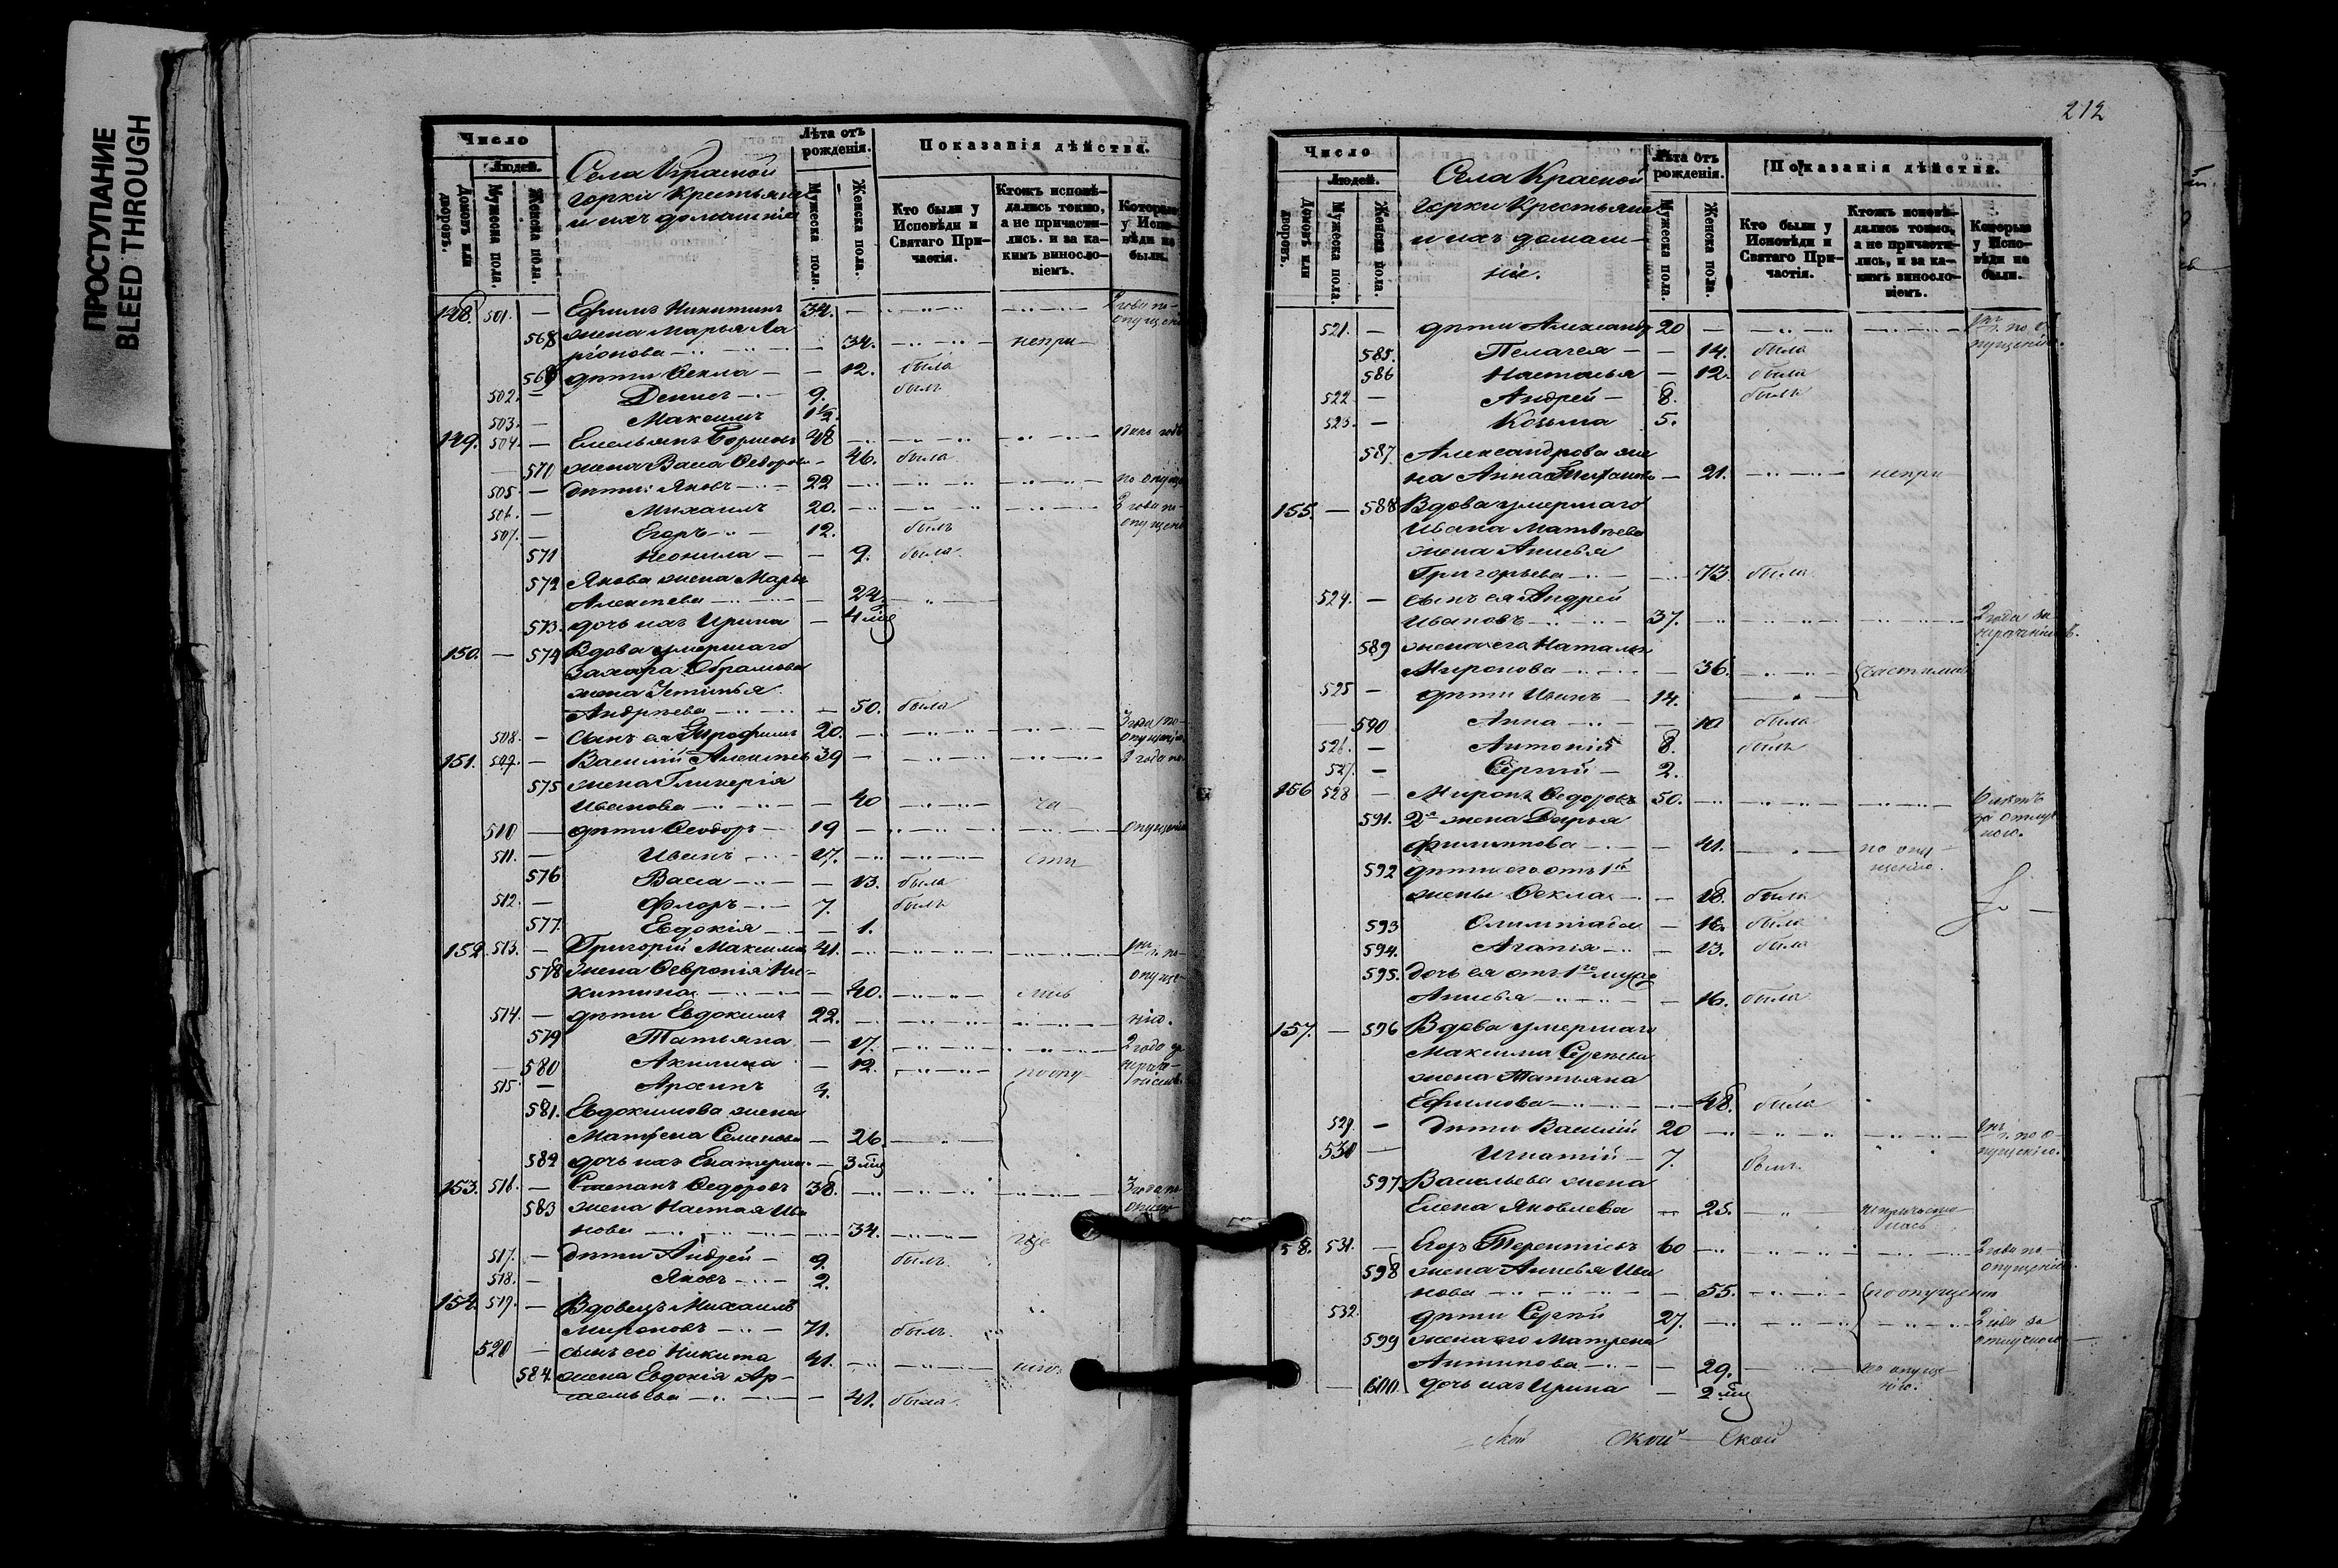 ПРОСТУПАНИЕ
BLEED THROUGH
Число
Людей.
Домовъ или дворовъ.
Мужеска пола.
Женска пола.
Села Красной
горки Крестьяне
и ихъ домашніе
Лѣта отъ рожденія.
Мужеска пола.
Женска пола.
Показанія дѣйства.
Кто были у Исповѣди и Святаго Причастія.
Ктожъ исповѣдались токмо, а не причастились. и за какимъ винословіемъ.
Которые у Исповѣди не были.
148. 501. — Ефимъ Никитинъ 34. — 2 года по опущен
568 жена Марья Ла
ріонова — 34. — непри
569 дѣти Фекла — — 12. была
502. — Денисъ — 9. былъ
503. — Максимъ 1½.
149. 504. — Емельянъ Борисовъ 48 — одинъ годъ
570 жена Васа Федорова — 46. была
505. — дѣти: Яковъ — 22 — по опуще
506. — Михаилъ 20. — 2 года по опущен
507. — Егоръ — 12. былъ
571 Неонила — — 9. была
572 Якова жена Марья
Алексѣева — 24.
573. дочь ихъ Ирина — 4 мѣс
150. — 574 Вдова умершаго
Захара Абрамова
жена Устинья
Андрѣева — 50. была
508. — сынъ ея Трофимъ 20. — 3 года по опущенію
151. 509. — Василій Алексѣевъ 39 — 2 года по
575 жена Гликерія
Иванова — 40 — ча
510 — дѣти Феодоръ — 19 — опущенію
511. — Иванъ — 17. — сти
576 Васа — — 13. была
512. — Флоръ — 7. былъ
577. Евдокія — — 1.
152. 513. — Григорій Максимовъ 41. — 1нъ г. по
578 жена Феvронія Ни-
китина — 40. — лись опуще-
514. — дѣти Евдокимъ 22. — нію.
579 Татьяна — 17. — 2 года за
580 Акилина — 12. — по опу
515. — Архипъ 4.
581. Евдокимова жена
Матрена Семенова — 26. —
582 дочь ихъ Екатерина — 3 мѣс
153. 516. — Степанъ Федоровъ 38. — 3 года по опущ
583 жена Настасія Ива
нова — 34. — ще
517. — дѣти Андрей — 9. былъ
518. — Яковъ — 2.
154. 519. — Вдовецъ Михаилъ
Мироновъ — 71. былъ.
520 — сынъ его Никита 41. — нію.
584 жена Евдокія Ар-
темьева — 41. была.
212
Число
Людей.
Домовъ или дворовъ.
Мужеска пола.
Женска пола.
Села Красной
горки Крестьяне
и ихъ домаш-
ніе.
Лѣта отъ рожденія.
Мужеска пола.
Женска пола.
Показанія дѣйства.
Кто были у Исповѣди и Святаго Причастія.
Ктожъ исповѣдались токмо, а не причастились, и за какимъ винословіемъ.
Которые у Исповѣди не были.
521. — дѣти Александръ 20 — 1нъ г. по опущенію.
585. Пелагея — — 14. была
586 Настасья — 12. была
522 — Андрей — 8. былъ
523. — Козьма 5.
587. Александрова же
на Анна — 21. — непри
155. — 588 Вдова умершаго
Ивана Матвѣева
жена Анисья
Григорьева — 73 была
524. — сынъ ея Андрей
Ивановъ — 37. — 2 года за
589 жена его Наталья
Миронова — 36. — частились
525 — дѣти Иванъ — 14.
590 Анна — — 10 была
526. — Антоній 8. былъ
527. — Сергѣй — 2.
156 528 — Миронъ Федоровъ 50. — 6 лѣтъ за отлучкою.
591. 2я жена Дарья
Филиппова — 41. — по опущенію.
592 дѣти его отъ 1й
жены Фекла — 18. была
593 Олимпіада — 16. была
594. Агапія — — 13. была
595. дочь ея отъ 1го мужа
Анисья — 16. была
157. — 596 Вдова умершаго
Максима Сергѣева
жена Татьяна
Ефимова — 48. была
529. — дѣти Василій 20 — 1нъ г. по опущенію.
530 — Игнатій — 7. былъ.
597 Васильева жена
Елена Яковлева — 25. — непричастилась
158. 531. — Егоръ Терентіевъ 60 — 2 года по опущенію.
598 жена Анисья Ива
нова — 55. — по опущенію
532. дѣти Сергѣй 27. — 2 года за отлучкою
599 жена его Матрена
Антипова — 29. — по опущенію.
600. дочь ихъ Ирина — 2 мѣс
ской ской ской